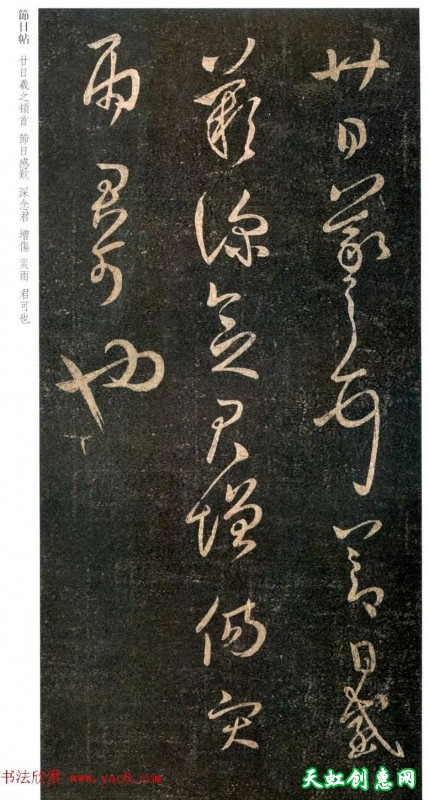 廿日羲之頓首節日感
歎深念君增傷災
雨君可也
節日帖 廿日羲之頓首 節日感歎 深念君 增傷 災雨 君可也
书法欣赏 www.yac8.com
天虹创惠网